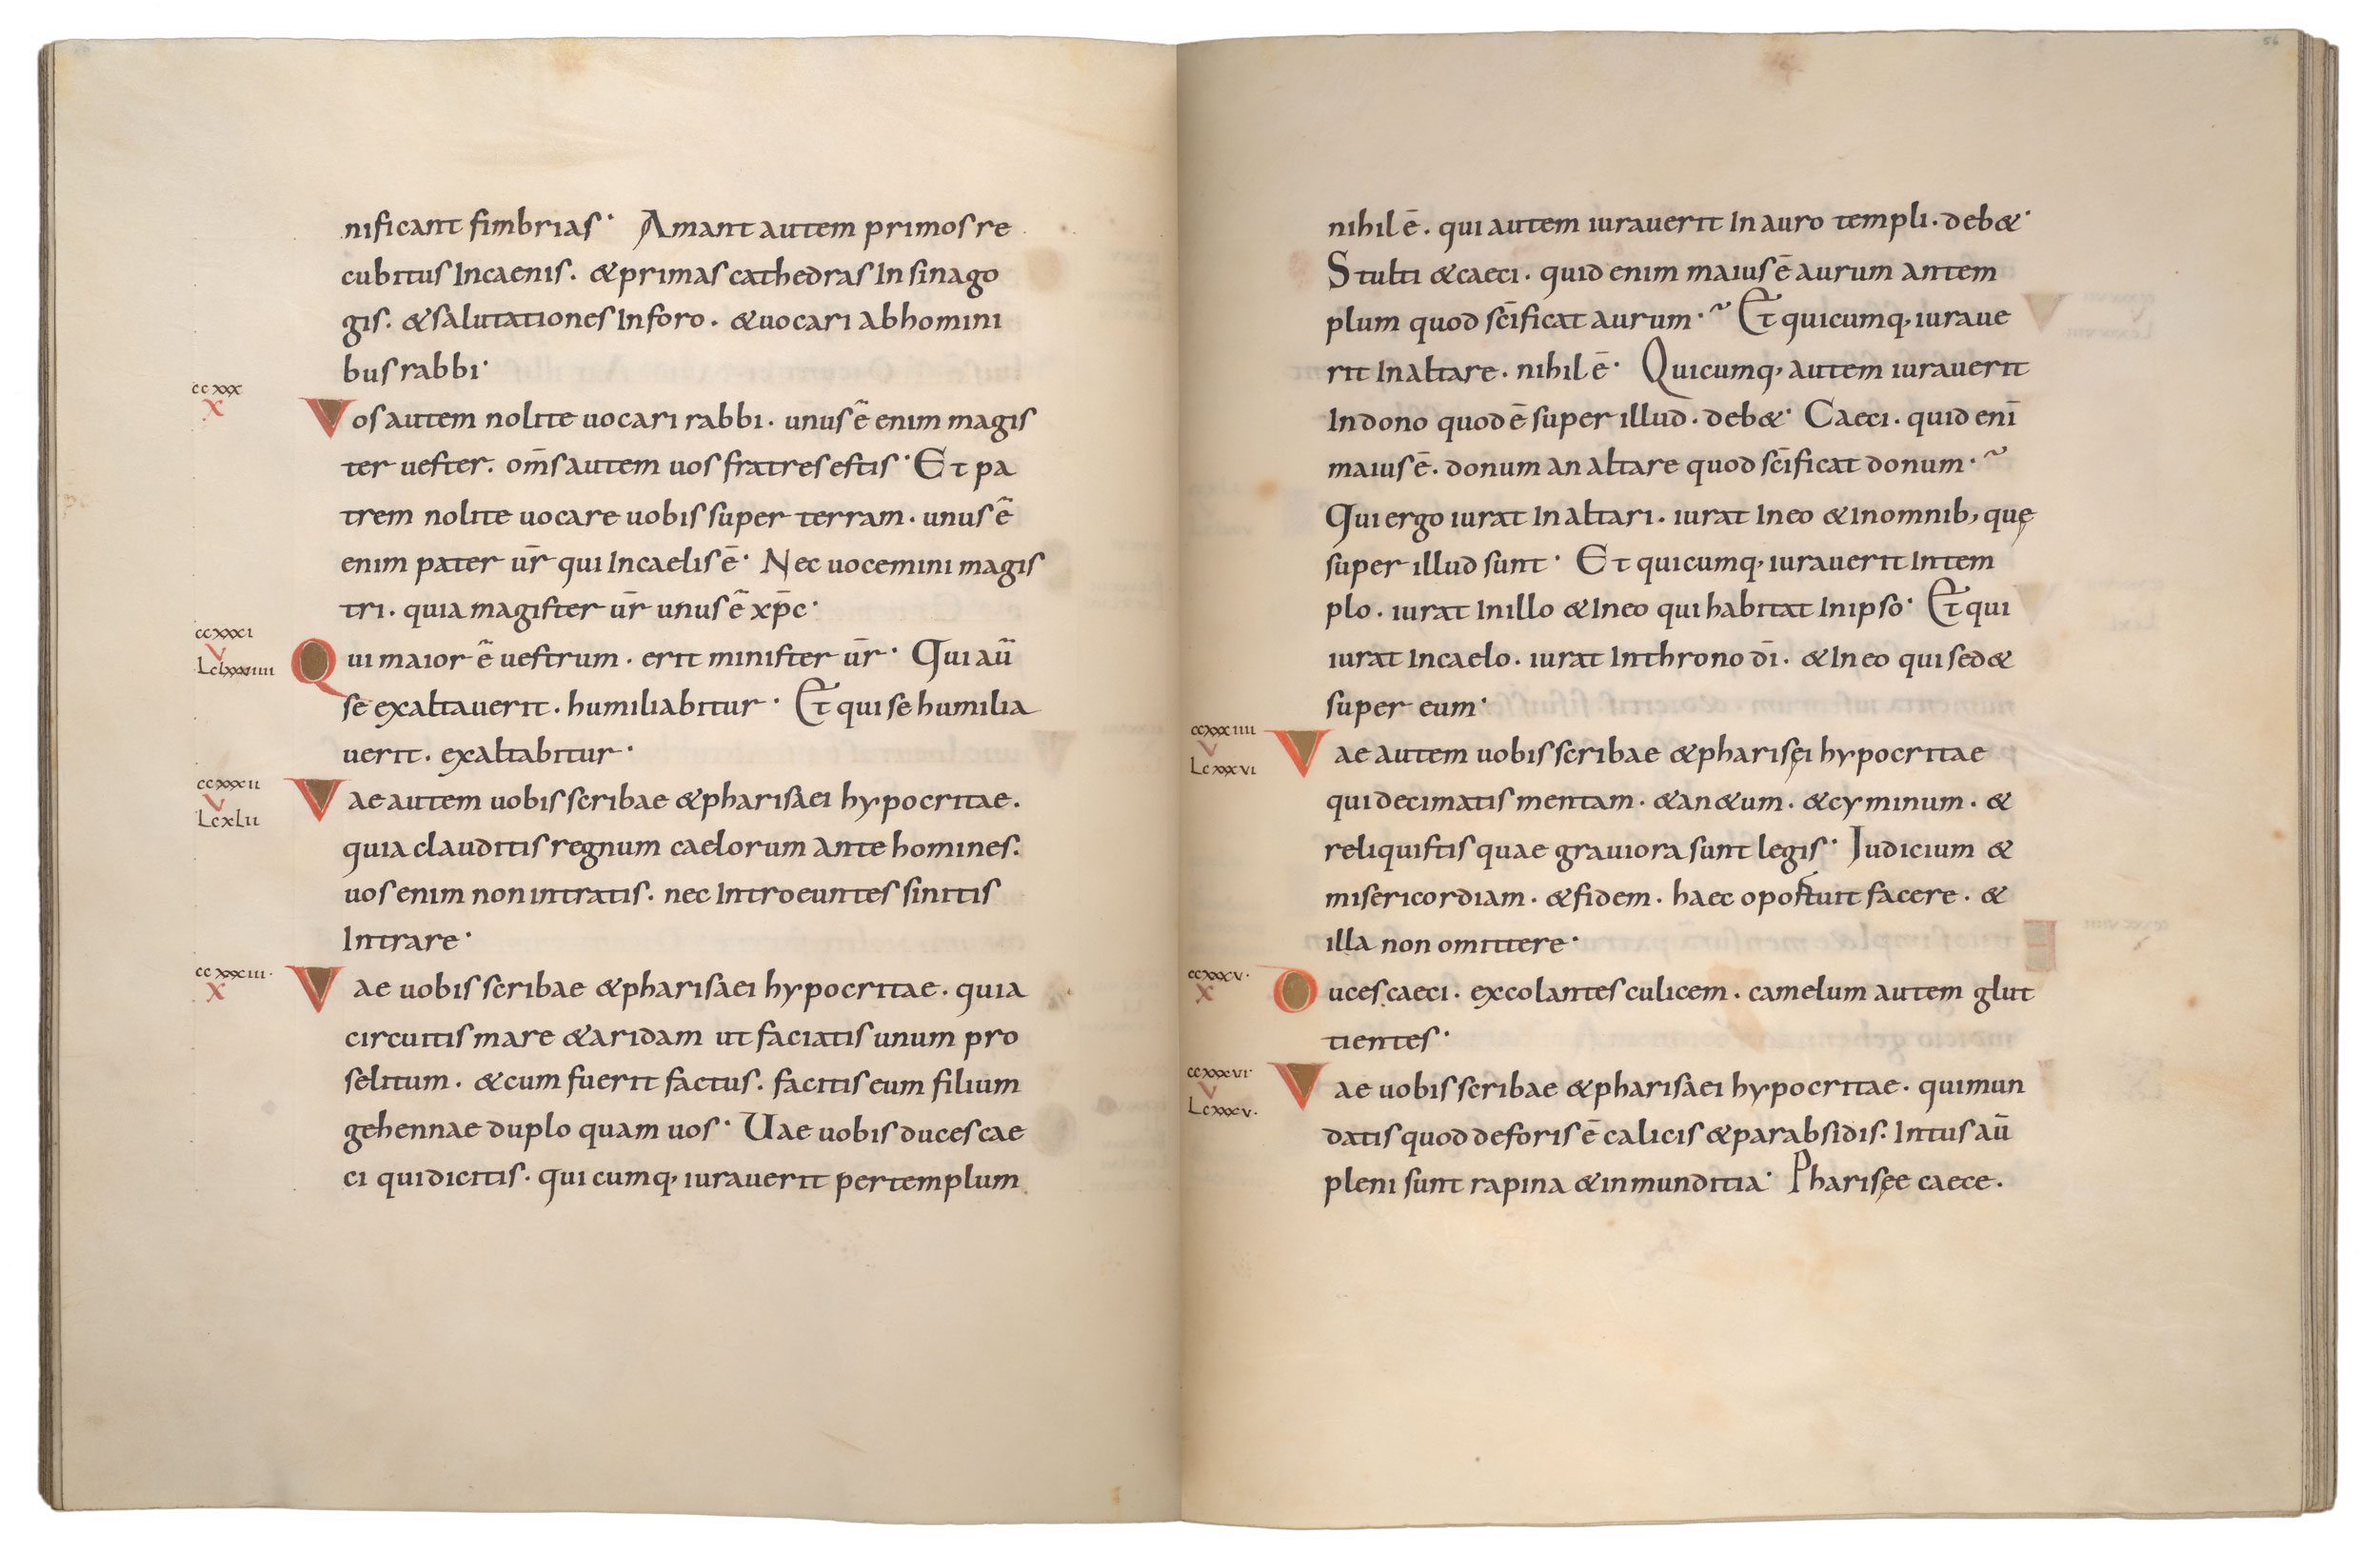 nificant fimbrias· Amant autem primos re
cubitus Incaenis. &primas cathedras In sinago
gis. &salutationes Inforo. &uocari abhomini
bus rabbi·
ccxxx
x
Vos autem nolite uocari rabbi. unus ē enim magis
ter uester. om̄s autem uos fratres estis· Et pa
trem nolite uocare uobis super terram. unus ē
enim pater ur̄ qui Incaelis ē· Nec uocemini magis
tri. quia magister ur̄ unus ē xp̄c·
ccxxxi
v
Qui maior ē uestrum. erit minister ur̄· Qui aū
se exaltauerit. humiliabitur· Et qui se humilia
uerit. exaltabitur·
ccxxxii
v
LcxLii
Vae autem uobis scribae &pharisaei hypocritae.
quia clauditis regnum caelorum ante homines.
uos enim non intratis. nec Introeuntes sinitis
Intrare·
ccxxxiii·
x
Vae uobis scribae &pharisaei hypocritae. quia
circuitis mare &aridam ut faciatis unum pro
selitum. &cum fuerit factus. facitis eum filium
gehennae duplo quam uos· Uae uobis duces cae
ci qui dicitis. qui cumq, iurauerit per templum
56
nihil ē. qui autem iurauerit In auro templi. deb&·
Stulti &caeci. quid enim maius ē aurum an tem
plum quod scīficat aurum·~ Et quicumq, iuraue
rit In altare. nihil ē· Quicumq, autem iurauerit
In dono quod ē super illud. deb&· Caeci. quid enī
maius ē. donum an altare quod scīficat donum·~
Qui ergo iurat In altari. iurat In eo &in omnib, quę
super illud sunt· Et quicumq, iurauerit In tem
plo. iurat In illo &In eo qui habitat In ipso· Et qui
iurat In caelo. iurat In throno dī. &In eo qui sed&
super eum·
ccxxxiiii
v
Lcxxxvi
Vae autem uobis scribae &pharisęi hypocritae
qui decimatis mentam. &an&um. &cyminum. &
reliquistis quae grauiora sunt legis· Iudicium &
misericordiam. &fidem. haec oportuit facere. &
illa non omittere·
ccxxxv·
x
Duces caeci. excolantes culicem. camelum autem glut
tientes·
ccxxxvi·
v
Lcxxxv·
Vae uobis scribae &pharisaei hypocritae. qui mun
datis quod deforis ē calicis &parabsidis. Intus aū
pleni sunt rapina &inmunditia· Pharisęe caece.